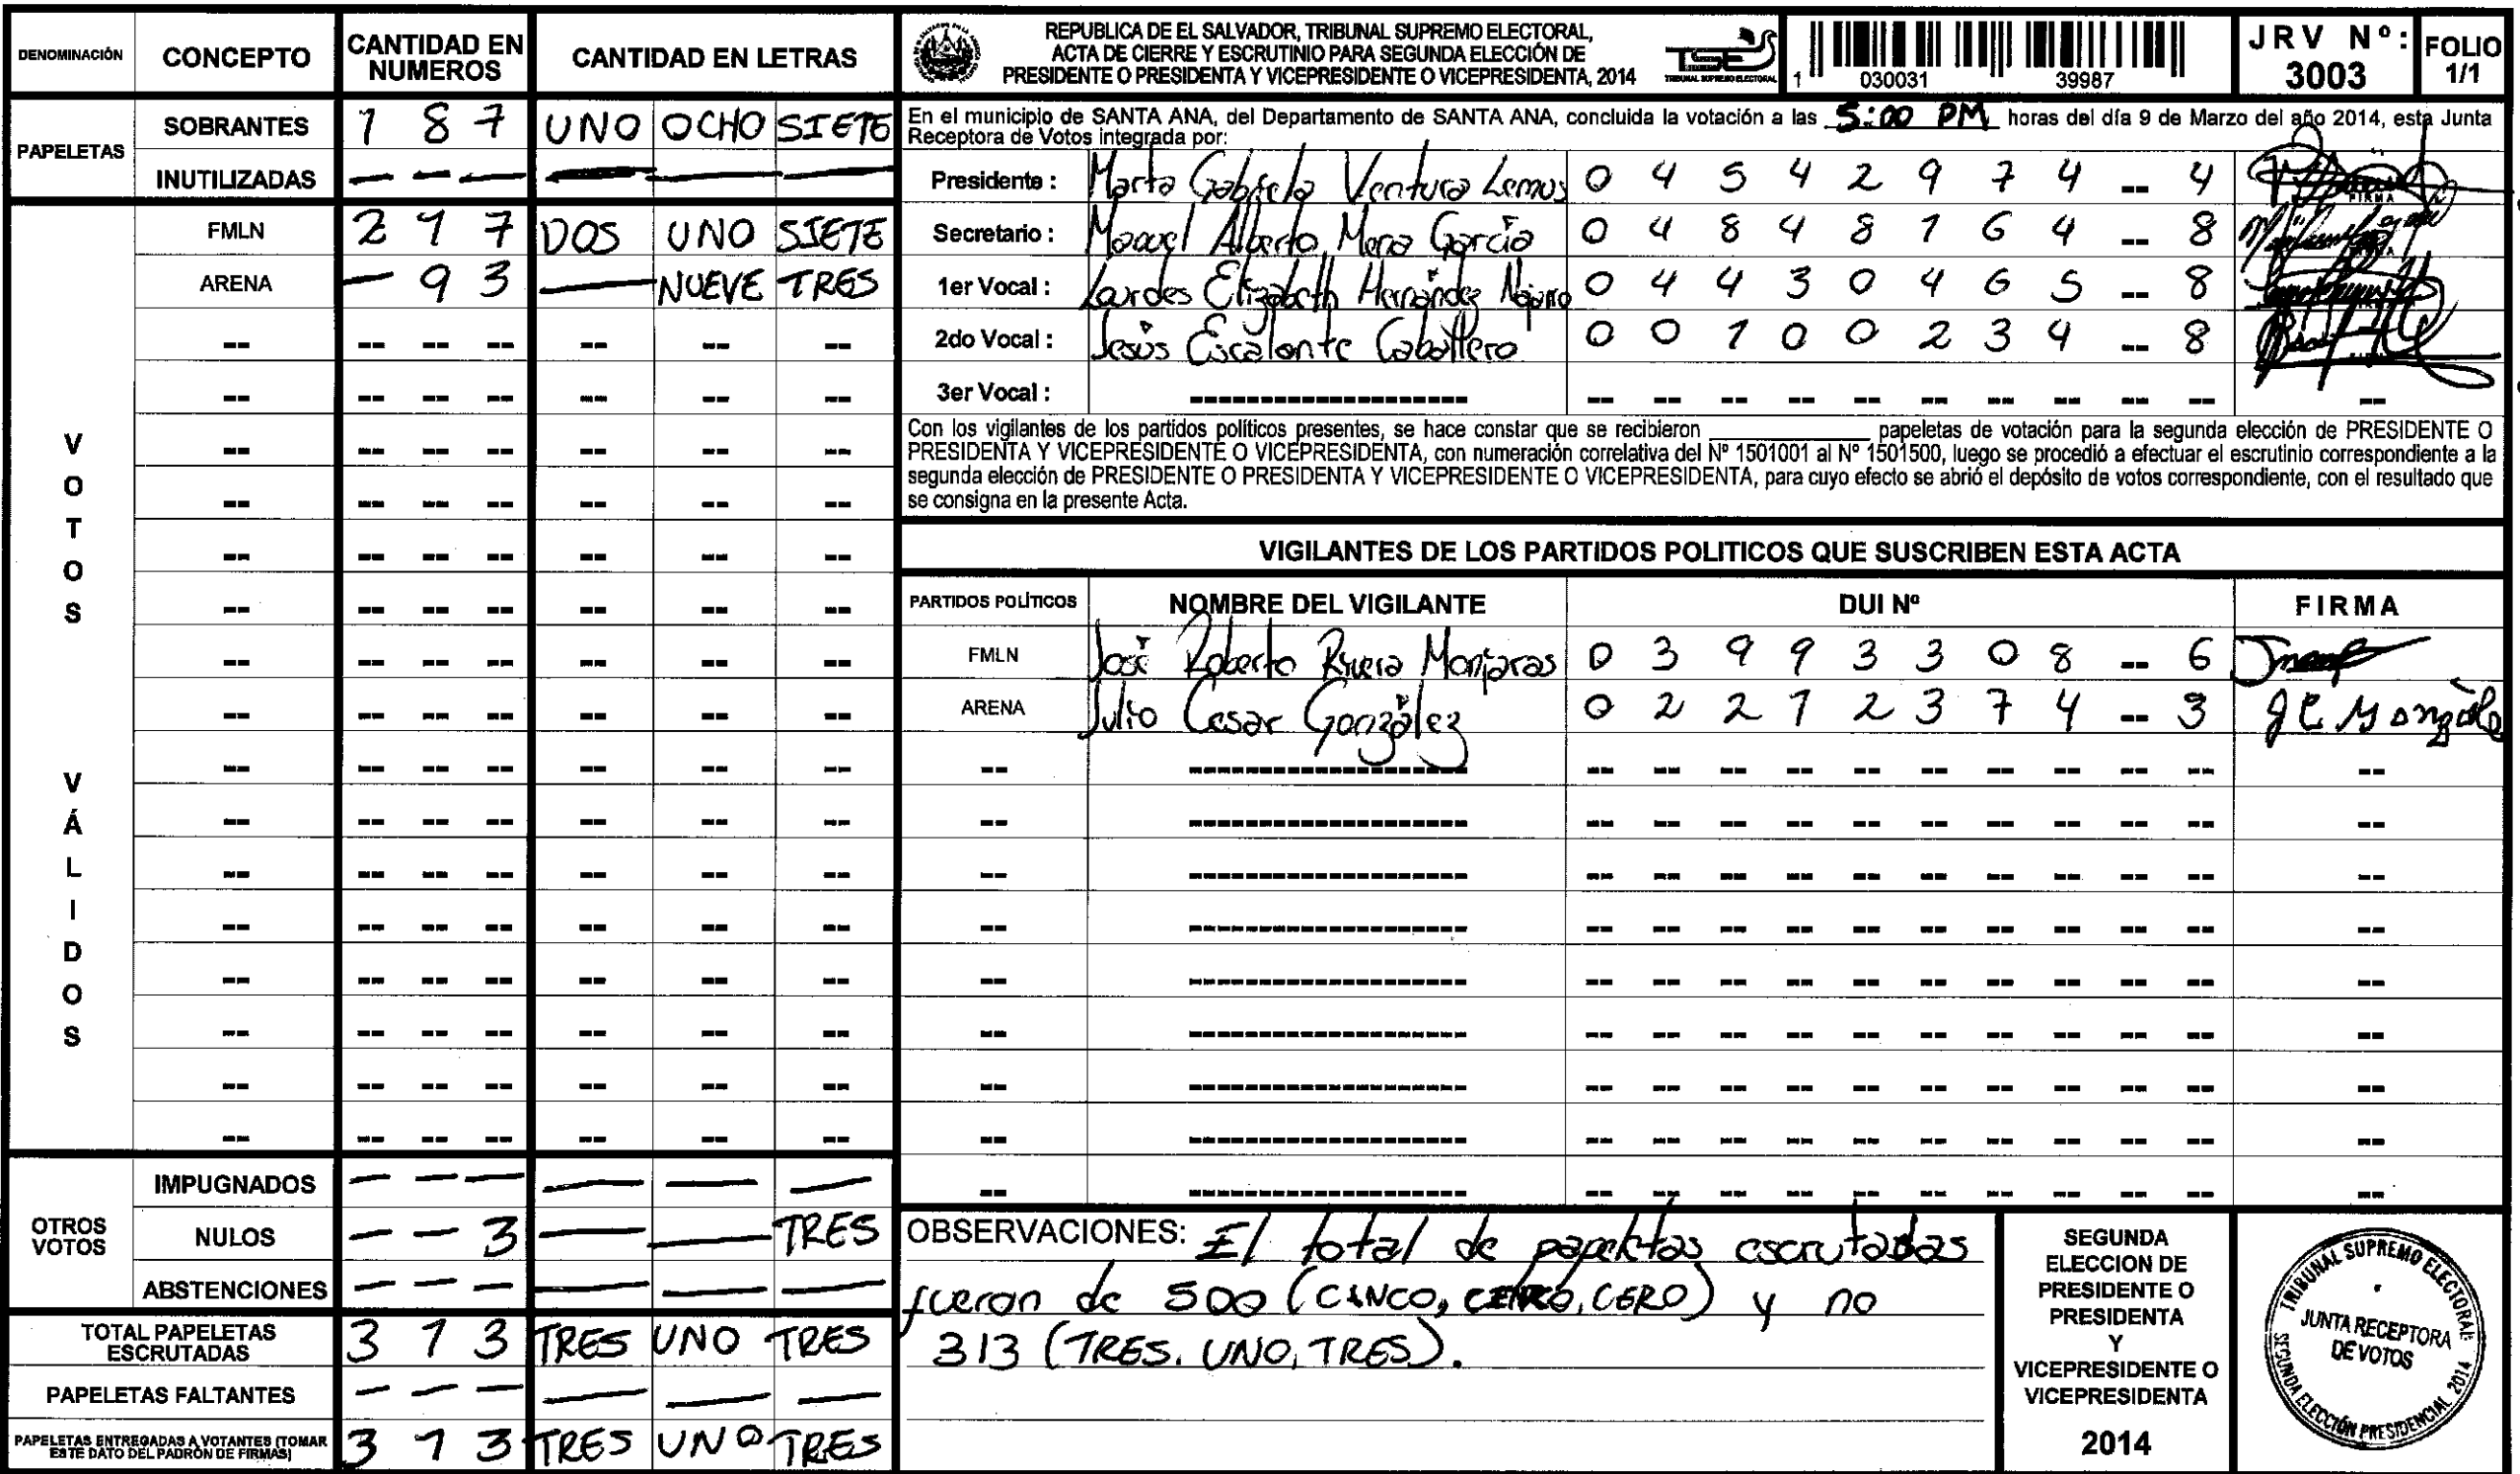 DENOMINACIÓN CONCEPTO CANTIDAD EN NUMEROS CANTIDAD EN LETRAS
PAPELETAS
SOBRANTES 1 8 7 UNO OCHO SIETE
INUTILIZADAS — — — — — —
VOTOS VÁLIDOS
FMLN 2 1 7 DOS UNO SIETE
ARENA — 9 3 — NUEVE TRES
OTROS VOTOS
IMPUGNADOS — — — — — —
NULOS — — 3 — — TRES
ABSTENCIONES — — — — — —
TOTAL PAPELETAS ESCRUTADAS 3 1 3 TRES UNO TRES
PAPELETAS FALTANTES — — — — — —
PAPELETAS ENTREGADAS A VOTANTES (TOMAR ESTE DATO DEL PADRÓN DE FIRMAS) 3 1 3 TRES UNO TRES
REPUBLICA DE EL SALVADOR, TRIBUNAL SUPREMO ELECTORAL,
ACTA DE CIERRE Y ESCRUTINIO PARA SEGUNDA ELECCIÓN DE
PRESIDENTE O PRESIDENTA Y VICEPRESIDENTE O VICEPRESIDENTA, 2014
TSE
TRIBUNAL SUPREMO ELECTORAL
1 030031 39987
JRV Nº: 3003
FOLIO 1/1
En el municipio de SANTA ANA, del Departamento de SANTA ANA, concluida la votación a las 5:00 PM horas del día 9 de Marzo del año 2014, esta Junta
Receptora de Votos integrada por:
Presidente : Marta Gabriela Ventura Lemus 0 4 5 4 2 9 7 4 -- 4
Secretario : Manuel Alberto Mena García 0 4 8 4 8 1 6 4 -- 8
1er Vocal : Lourdes Elizabeth Hernández Najarro 0 4 4 3 0 4 6 5 -- 8
2do Vocal : Jesús Escalante Caballero 0 0 1 0 0 2 3 4 -- 8
3er Vocal :
Con los vigilantes de los partidos políticos presentes, se hace constar que se recibieron ____________ papeletas de votación para la segunda elección de PRESIDENTE O
PRESIDENTA Y VICEPRESIDENTE O VICEPRESIDENTA, con numeración correlativa del Nº 1501001 al Nº 1501500, luego se procedió a efectuar el escrutinio correspondiente a la
segunda elección de PRESIDENTE O PRESIDENTA Y VICEPRESIDENTE O VICEPRESIDENTA, para cuyo efecto se abrió el depósito de votos correspondiente, con el resultado que
se consigna en la presente Acta.
VIGILANTES DE LOS PARTIDOS POLITICOS QUE SUSCRIBEN ESTA ACTA
PARTIDOS POLÍTICOS NOMBRE DEL VIGILANTE DUI Nº FIRMA
FMLN José Roberto Rivera Monjaras 0 3 9 9 3 3 0 8 -- 6
ARENA Julio Cesar González 0 2 2 1 2 3 7 4 -- 3
OBSERVACIONES: El total de papeletas escrutadas
fueron de 500 (CINCO, CERO, CERO) y no
313 (TRES. UNO, TRES).
SEGUNDA
ELECCION DE
PRESIDENTE O
PRESIDENTA
Y
VICEPRESIDENTE O
VICEPRESIDENTA
2014
TRIBUNAL SUPREMO ELECTORAL
JUNTA RECEPTORA
DE VOTOS
SEGUNDA ELECCIÓN PRESIDENCIAL 2014